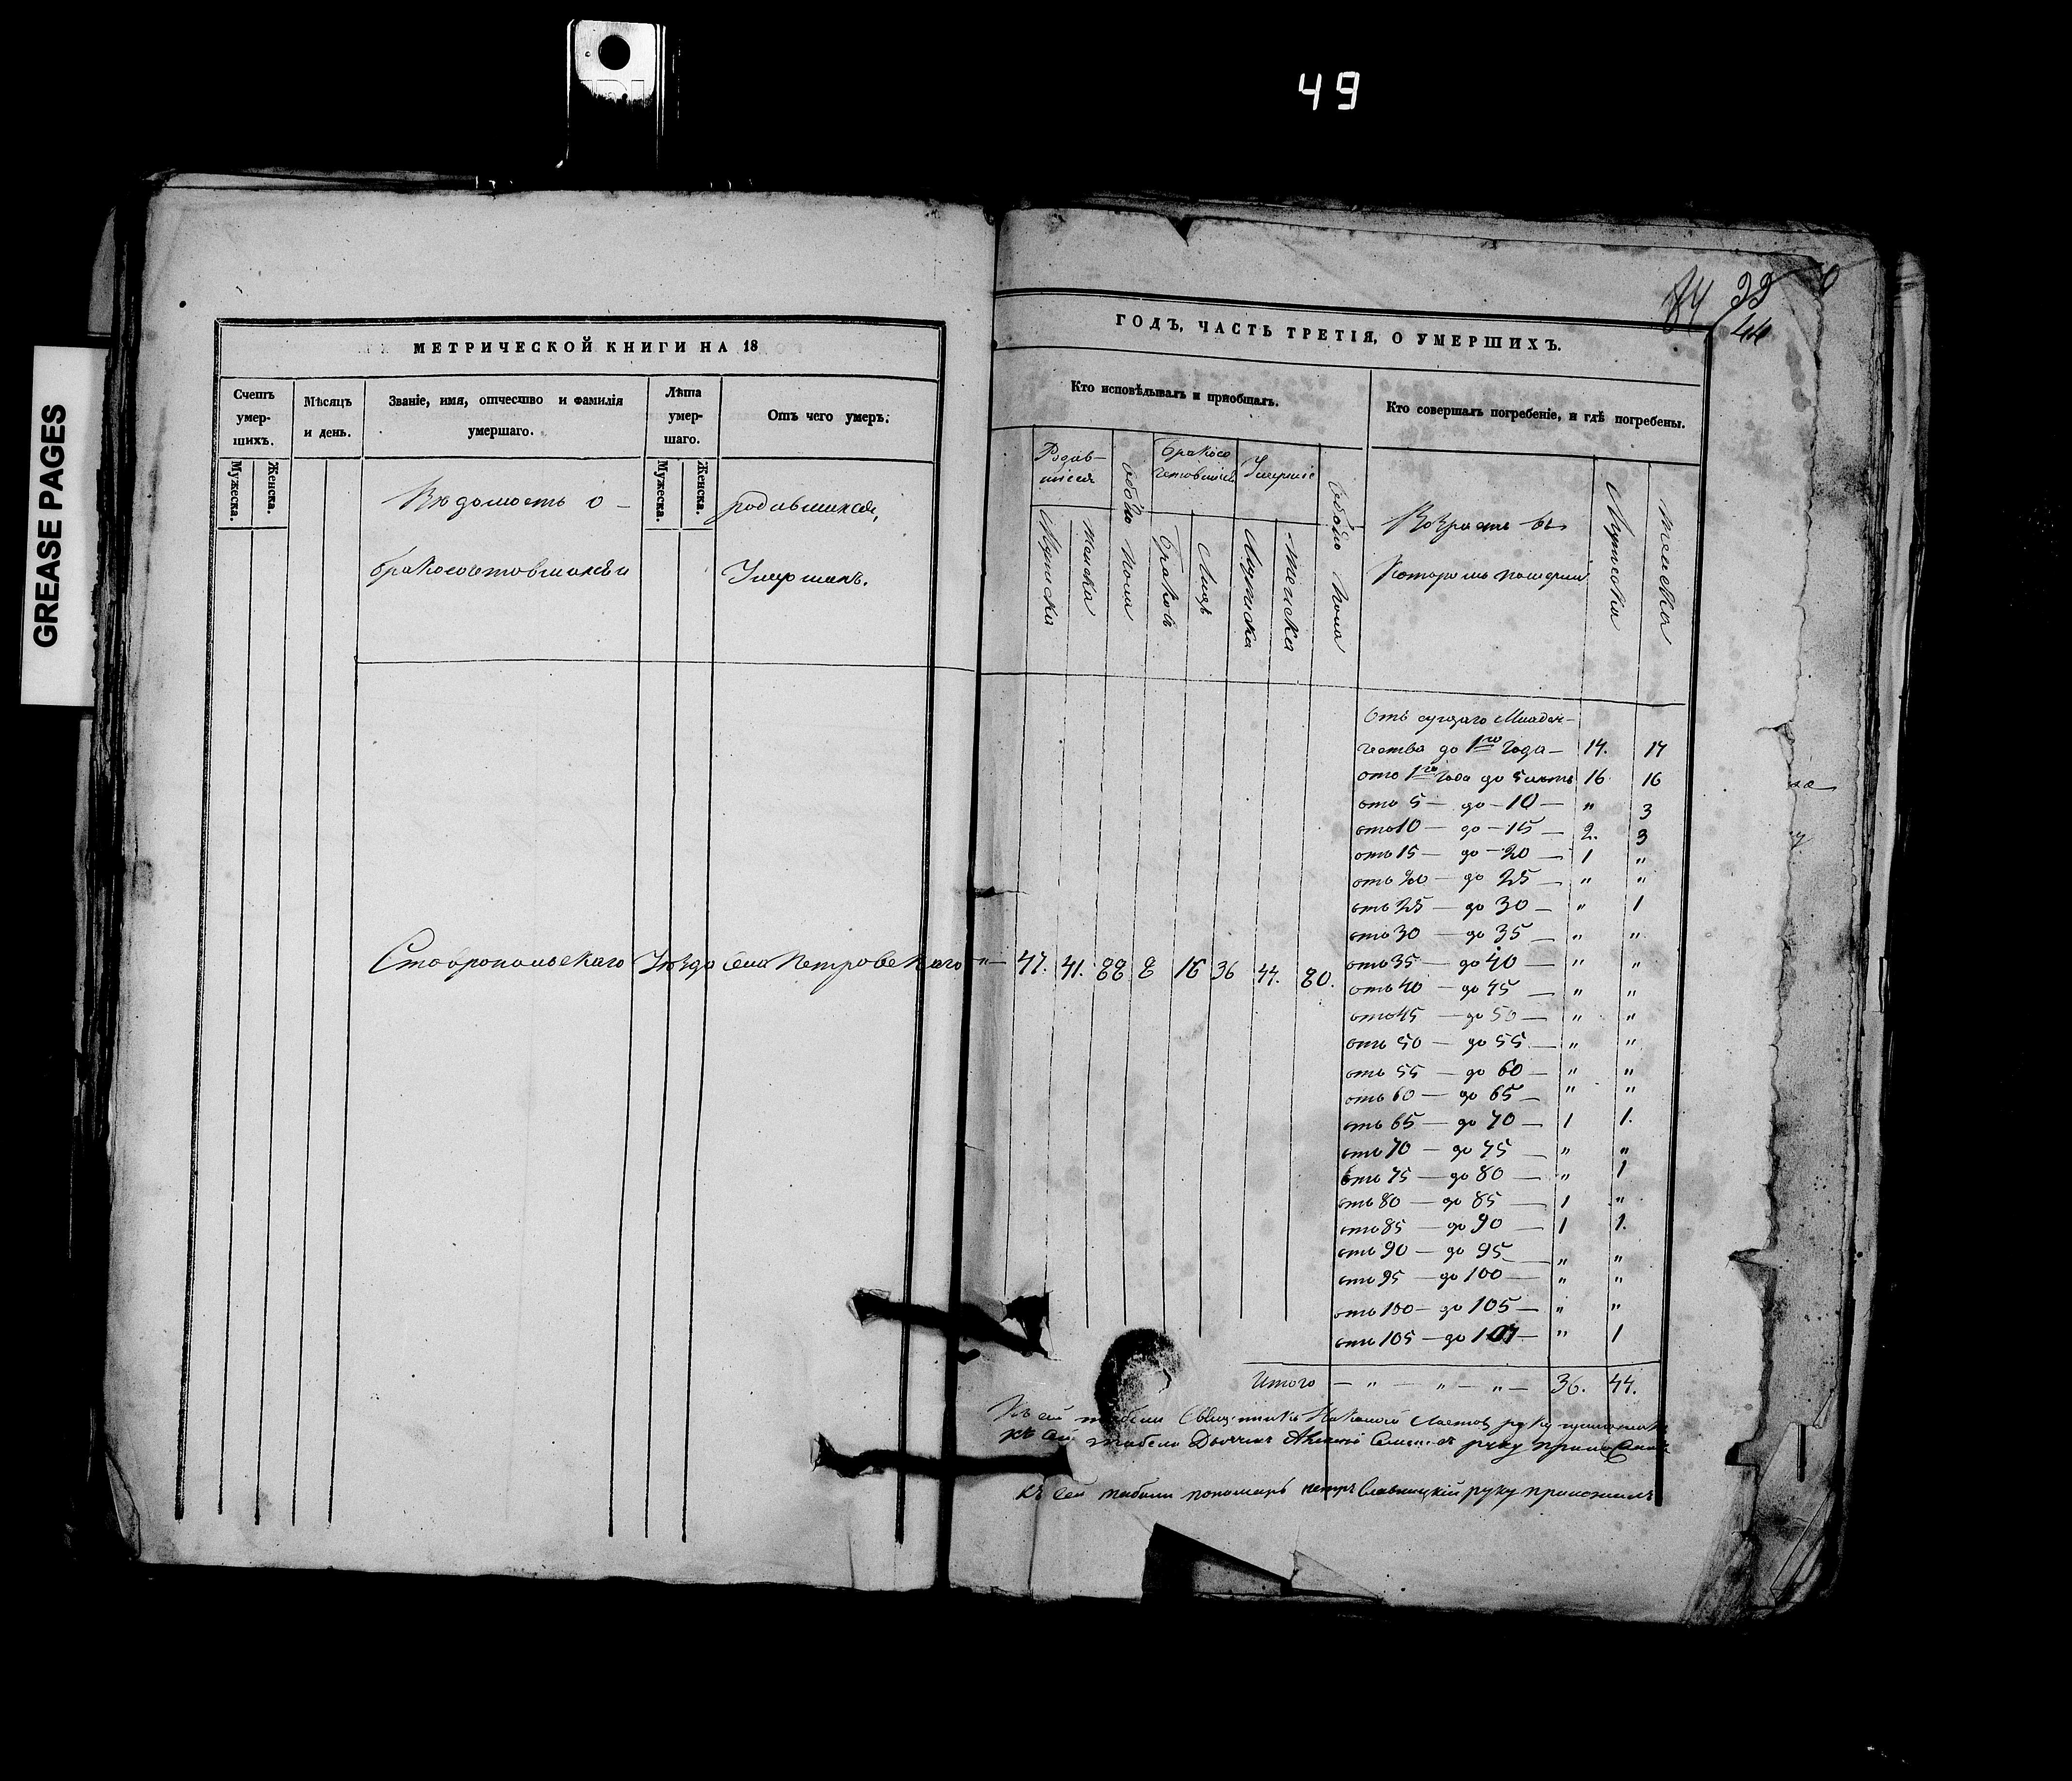 49
GREASE PAGES
МЕТРИЧЕСКОЙ КНИГИ НА 18
Счетъ умер- шихъ.
Мѣсяцъ и день.
Званіе, имя, отчество и фамилія умершаго.
Лѣта умер- шаго.
Отъ чего умеръ.
Мужеска.
Женска.
Мужеска.
Женска.
Вѣдомость о — родившихся,
бракосочетовшихся и Умершихъ.
Ставропольскаго Уѣзда Села Петровскаго — " —
84 99
44
ГОДЪ, ЧАСТЬ ТРЕТІЯ, О УМЕРШИХЪ.
Кто исповѣдывалъ и пріобщалъ.
Кто совершалъ погребеніе, и гдѣ погребены.
Родив- шіеся
Обоего Пола
Бракосо четовшіеся
Умершіе
Обоего Пола
Мужеска
Женска
Браковъ
Лицъ
Мужеска
Женска
Возрастъ въ
Которомъ померли
Мужеска
Женска
47. 41. 88 8 16 36 44. 80.
Отъ сущаго Младен-
чества до 1го Года — 14. 14
отъ 1го Года до 5 лѣтъ 16 16
отъ 5 — до — 10 — " 3
отъ 10 — до — 15 — 2. 3
отъ 15 — до — 20 — 1 "
отъ 20 — до 25 — " "
отъ 25 — до 30 — " 1
отъ 30 — до 35 — " "
отъ 35 — до 40 — " "
отъ 40 — до 45 — " "
отъ 45 — до 50 — " "
отъ 50 — до 55 — " "
отъ 55 — до 60 — " "
отъ 60 — до 65 — " "
отъ 65 — до 70 — 1 1.
отъ 70 — до 75 — " "
отъ 75 — до 80 — " 1
отъ 80 — до 85 — 1 "
отъ 85 — до 90 — 1 1.
отъ 90 — до 95 — " "
отъ 95 — до 100 — " "
отъ 100 — до 105 — " "
отъ 105 — до 107 — " 1
Итого — " — " — " — 36. 44.
Къ сей табели Священникъ руку приложилъ
Къ сей табели Дьячекъ руку приложилъ
Къ сей табели пономарь Петръ Славницкій руку приложилъ